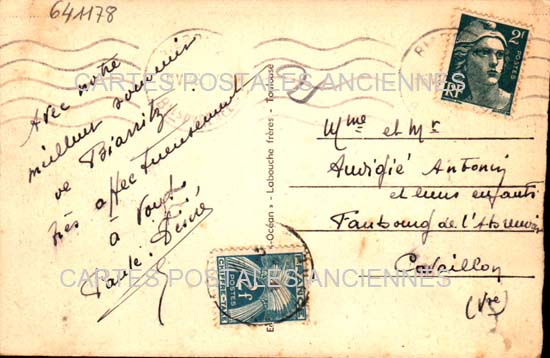 641178
Avec notre
meilleur souvenir
de Biarritz
très affectueusement
à vous
Désiré
CARTES POSTALES ANCIENNES
CARTES POSTALES ANCIENNES
-Océan" - Labouche frères - Toulouse
2F
POSTES
RF
Mme et Mr
Audigié Antonin
et leurs enfants
Faubourg de l'
Cavaillon
(Vse)
POSTES
CHIFFRE-TAXE
FRANCE